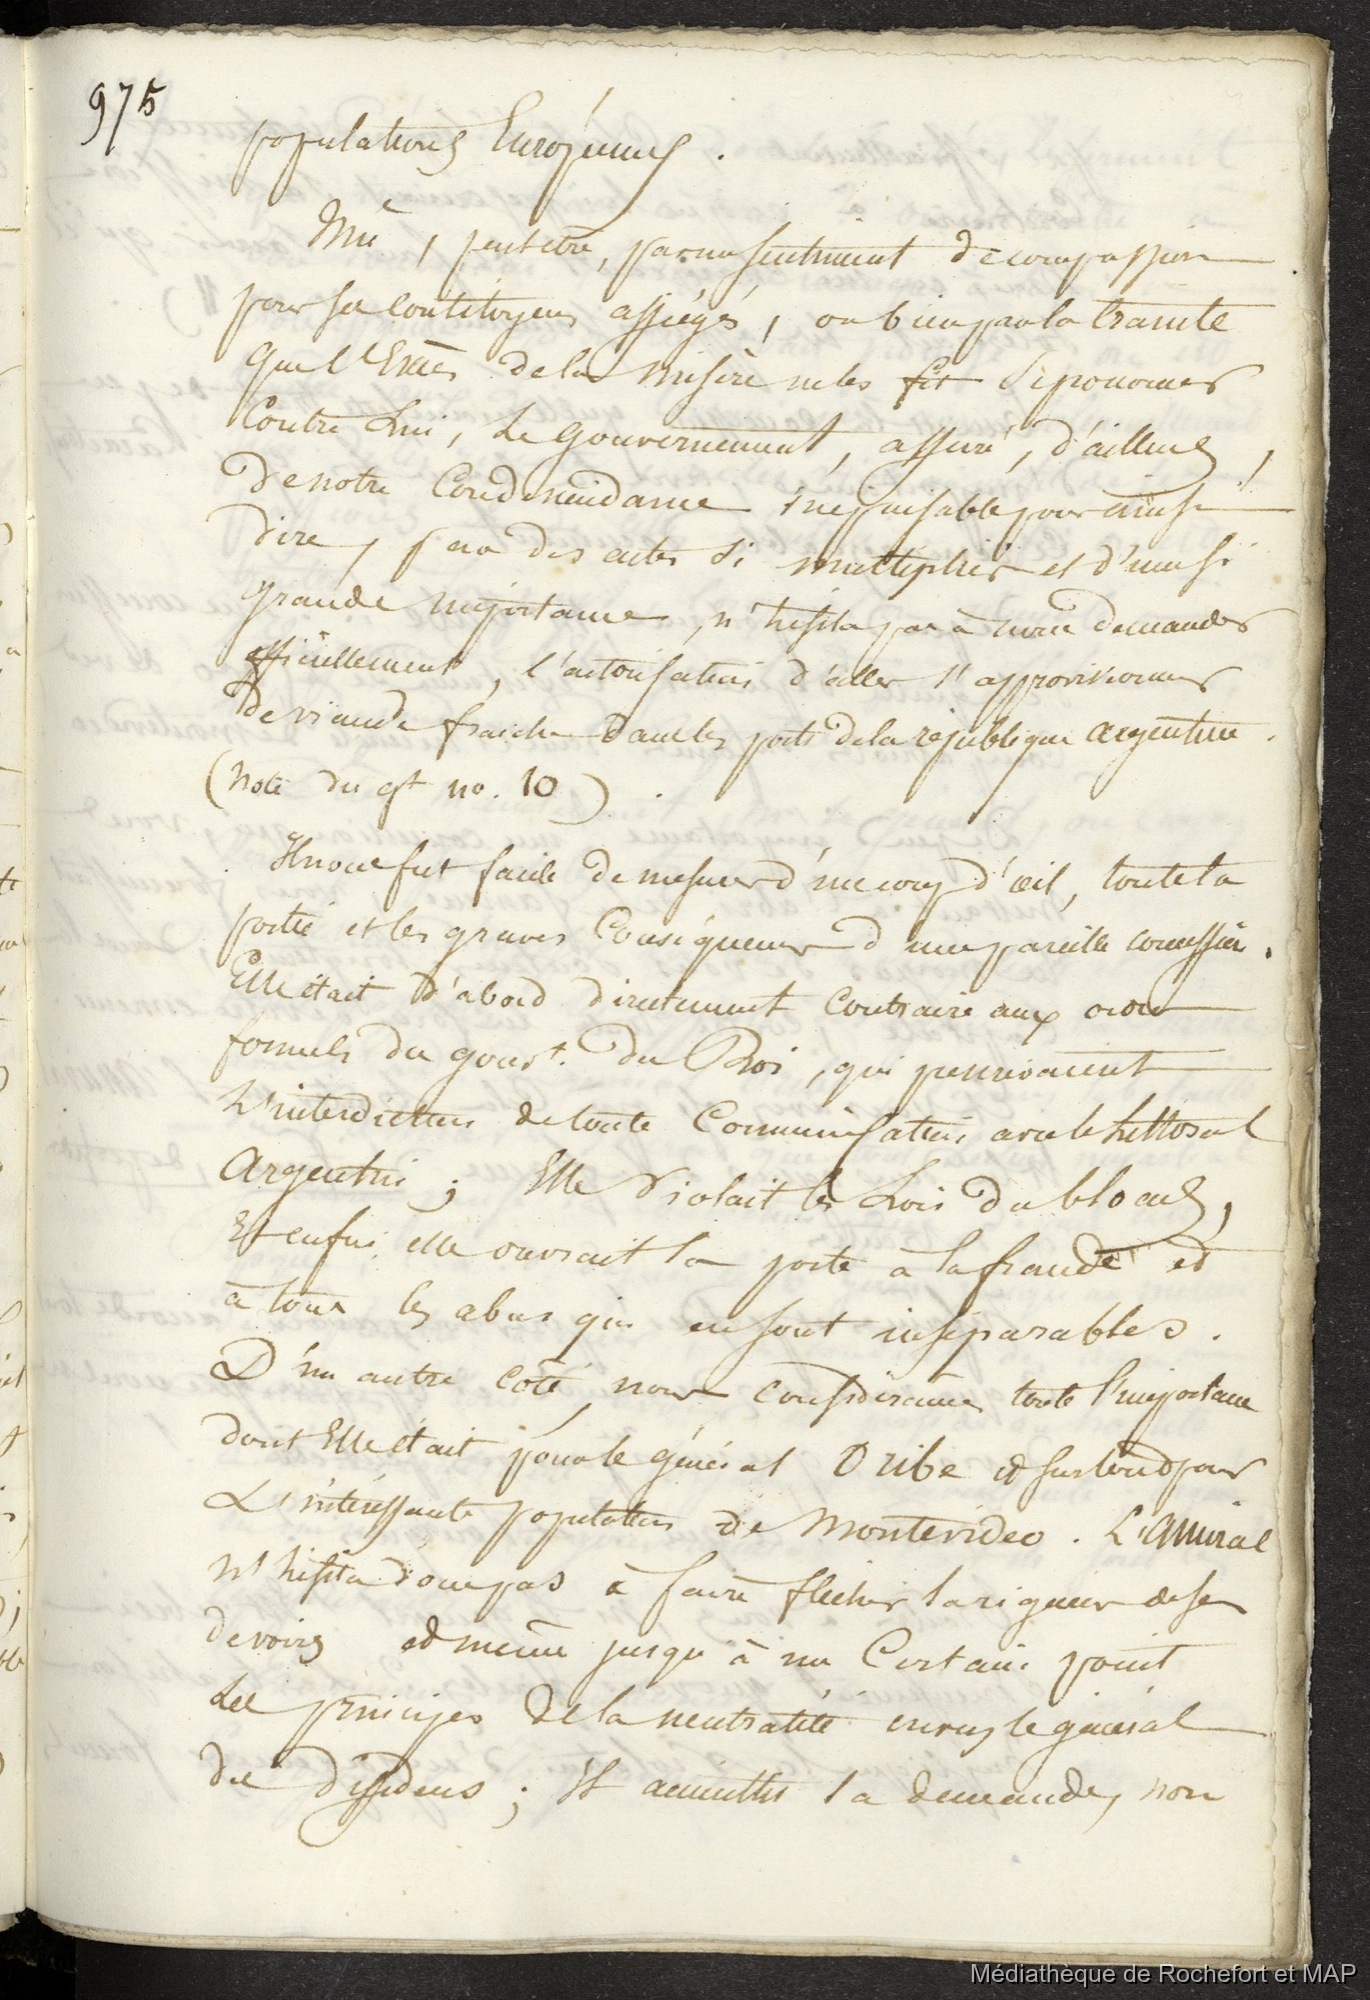 975
populations Européennes.
Mû, peut etre, par un sentiment de compassion
pour ses concitoyens assiégés, ou bien par la crainte
que l'Excès de la misère ne les fit se prononcer
Contre Lui, Le Gouvernement, assuré, d'ailleurs,
de notre Condescendance inépuisable pour ainsi
dire, par des actes si multipliés et d'une si
grande importance, n'hésita pas à nous demander
officiellement, l'autorisation d'aller s'approvisionner
de viande fraiche dans les ports de la république argentine.
(Note du gt no. 10).
Il nous fut facile de mesurer d'un coup d'œil, toute la
portée et les graves Conséquences d'une pareille concession.
Elle était d'abord directement Contraire aux ordres
formels du gouvt. du Roi, qui prescrivaient
L'interdiction de toute Communication avec le Littoral
Argentin; Elle Violait les Lois du blocus,
Et enfin elle ouvrait la porte à la fraude et
à tous les abus qui en sont inséparables.
D'un autre coté, nous considerames toute l'importance
dont Elle était pour le général Oribe et surtout pour
L'intéressante population de Montévideo. L'amiral
n'hésita donc pas à faire fléchir la rigueur de ses
devoirs et même jusqu'à un Certain point
Les principes de la neutralité envers le général
des dissidens; Il accueillit la demande, non
Médiathèque de Rochefort et MAP